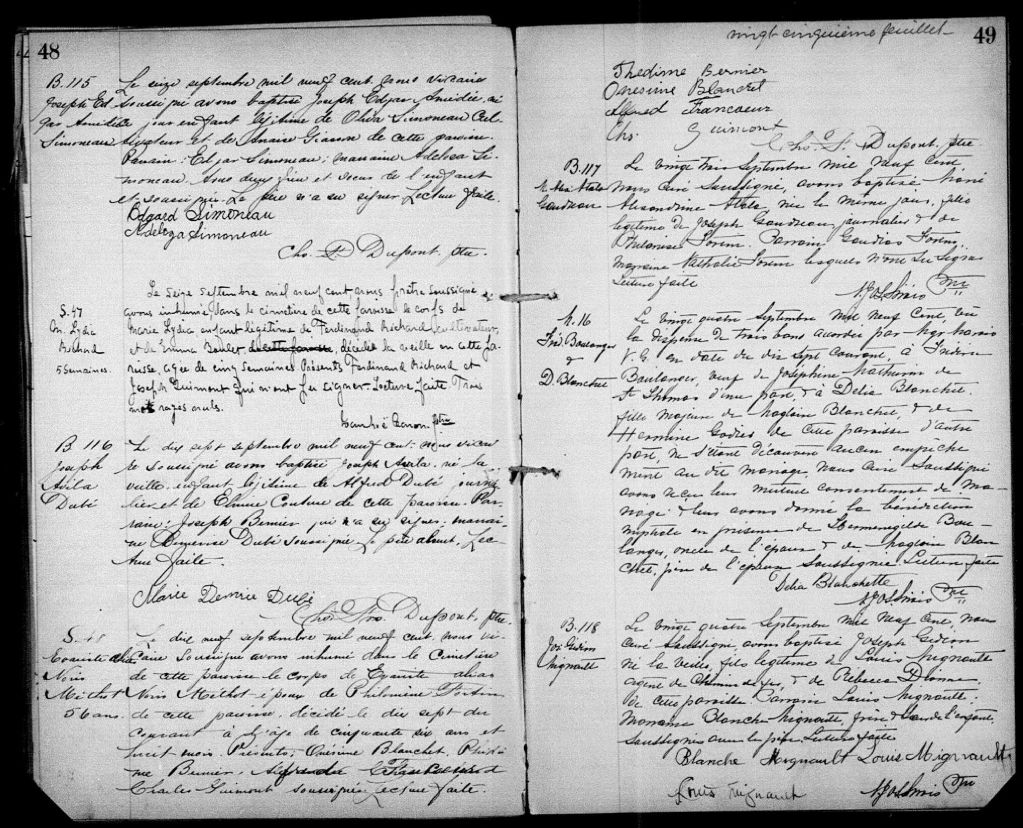 48
B. 115
Joseph Ed
gar Amédée
Simoneau
Le seize septembre mil neuf cent nous vicaire
soussigné avons baptisé Joseph Edgar Amédée, né
ce jour enfant légitime de Simoneau Cul
tivateur et de Giasson de cette paroisse.
Parrain: Edgar Simoneau; marraine Adelesa Si
moneau tous deux frère et soeur de l'enfant
et soussignés. Le père n'a su signer. Lecture faite.
Edgard Simoneau
Adeleza Simoneau
Chs. Dupont. ptre.
S. 47
M. Lydia
Richard
5 semaines.
Le seize septembre mil neuf cent nous prêtre soussigné
avons inhumé dans le cimetière de cette paroisse le corps de
Marie Lydia enfant légitime de Ferdinand Richard, cultivateur,
et de Emma Boulet de cette paroisse, décédée la veille en cette pa
roisse, agée de cinq semaines. Présents Ferdinand Richard et
Joseph Guimont qui n'ont su signer. Lecture faite Trois
mots rayés nuls.
Caron ptre
B 116
Joseph
Avila
Dubé
Le dix sept septembre mil neuf cent: nous vicai
re soussigné avons baptisé Joseph Avila, né la
veille, enfant légitime de Alfred Dubé journa
lier et de Couture de cette paroisse. Par
rain: Joseph Bernier qui n'a su signer; marrai-
ne Dubé soussignée. Le père absent. Lec
ture faite.
Marie Demrie Dubé
Chs. Frs. Dupont, ptre.
S. 48
Evariste alias
Noris
Méthot
56 ans.
Le dix neuf septembre mil neuf cent, nous vi-
caire soussigné avons inhumé dans le cimetière
de cette paroisse le corps de Evariste alias
Noris Méthot époux de Philomène Fortin
de cette paroisse, décédé le dix sept du
courant à l'âge de cinquante six ans et
huit mois. Présents; Onésime Blanchet, Thédi
me Bernier, Alfred Francoeur
Charles Guimont soussignés Lecture faite.
vingt cinquième feuillet
49
Thedime Bernier
Onesime Blanchet
Alfred Francoeur
Chs. Guimont
Chs. F. Dupont, ptre
B. 117
M. Alx. Atala
Gaudreau
Le vingt trois Septembre mil neuf cent
Nous Curé Soussigné, avons baptisé, Marie
Alexandrine Atala née le même jour, fille
légitime de Joseph Gaudreau journalier & de
Philomène Morin. Parrain Gaudias Morin,
Marraine Nathalie Morin lesquels n'ont su signer
Lecture faite
Ptre
M. 16
Fréd. Boulanger
&
D. Blanchet
Le vingt quatre Septembre mil neuf Cent, vu
la dispense de trois bans accordée par Mgr Marois
V. G. en date du dix sept Courant, à Frédéric
Boulanger, veuf de Joséphine de
St Thomas d'une part, & à Délia Blanchet
fille majeure de Magloire Blanchet, & de
Hermine Godreau de cette paroisse d'autre
part, ne s'étant découvert aucun empêche
ment au dit mariage, nous Curé Soussigné
avons reçu leur mutuel consentement de Ma-
riage & leur avons donné la bénédiction
nuptiale en présence de Herménégilde Bou-
langer, oncle de l'époux & de Magloire Blan
chet, père de l'épouse Soussignée Lecture faite
Delia Blanchette
Ptre
B. 118
Jos. Gédéon
Mignault
Le vingt quatre Septembre mil neuf Cent, nous
Curé Soussigné, avons baptisé Joseph Gédéon
né la veille, fils légitime de Louis Mignault
agent de Chemin de fer & de Rébecca Dionne
de cette paroisse. Parrain Louis Mignault.
Marraine Blanche Mignault, frère & soeur de l'enfant,
Soussignés avec le père. Lecture faite
Blanche Mignault Louis Mignault
Louis Mignault
Ptre